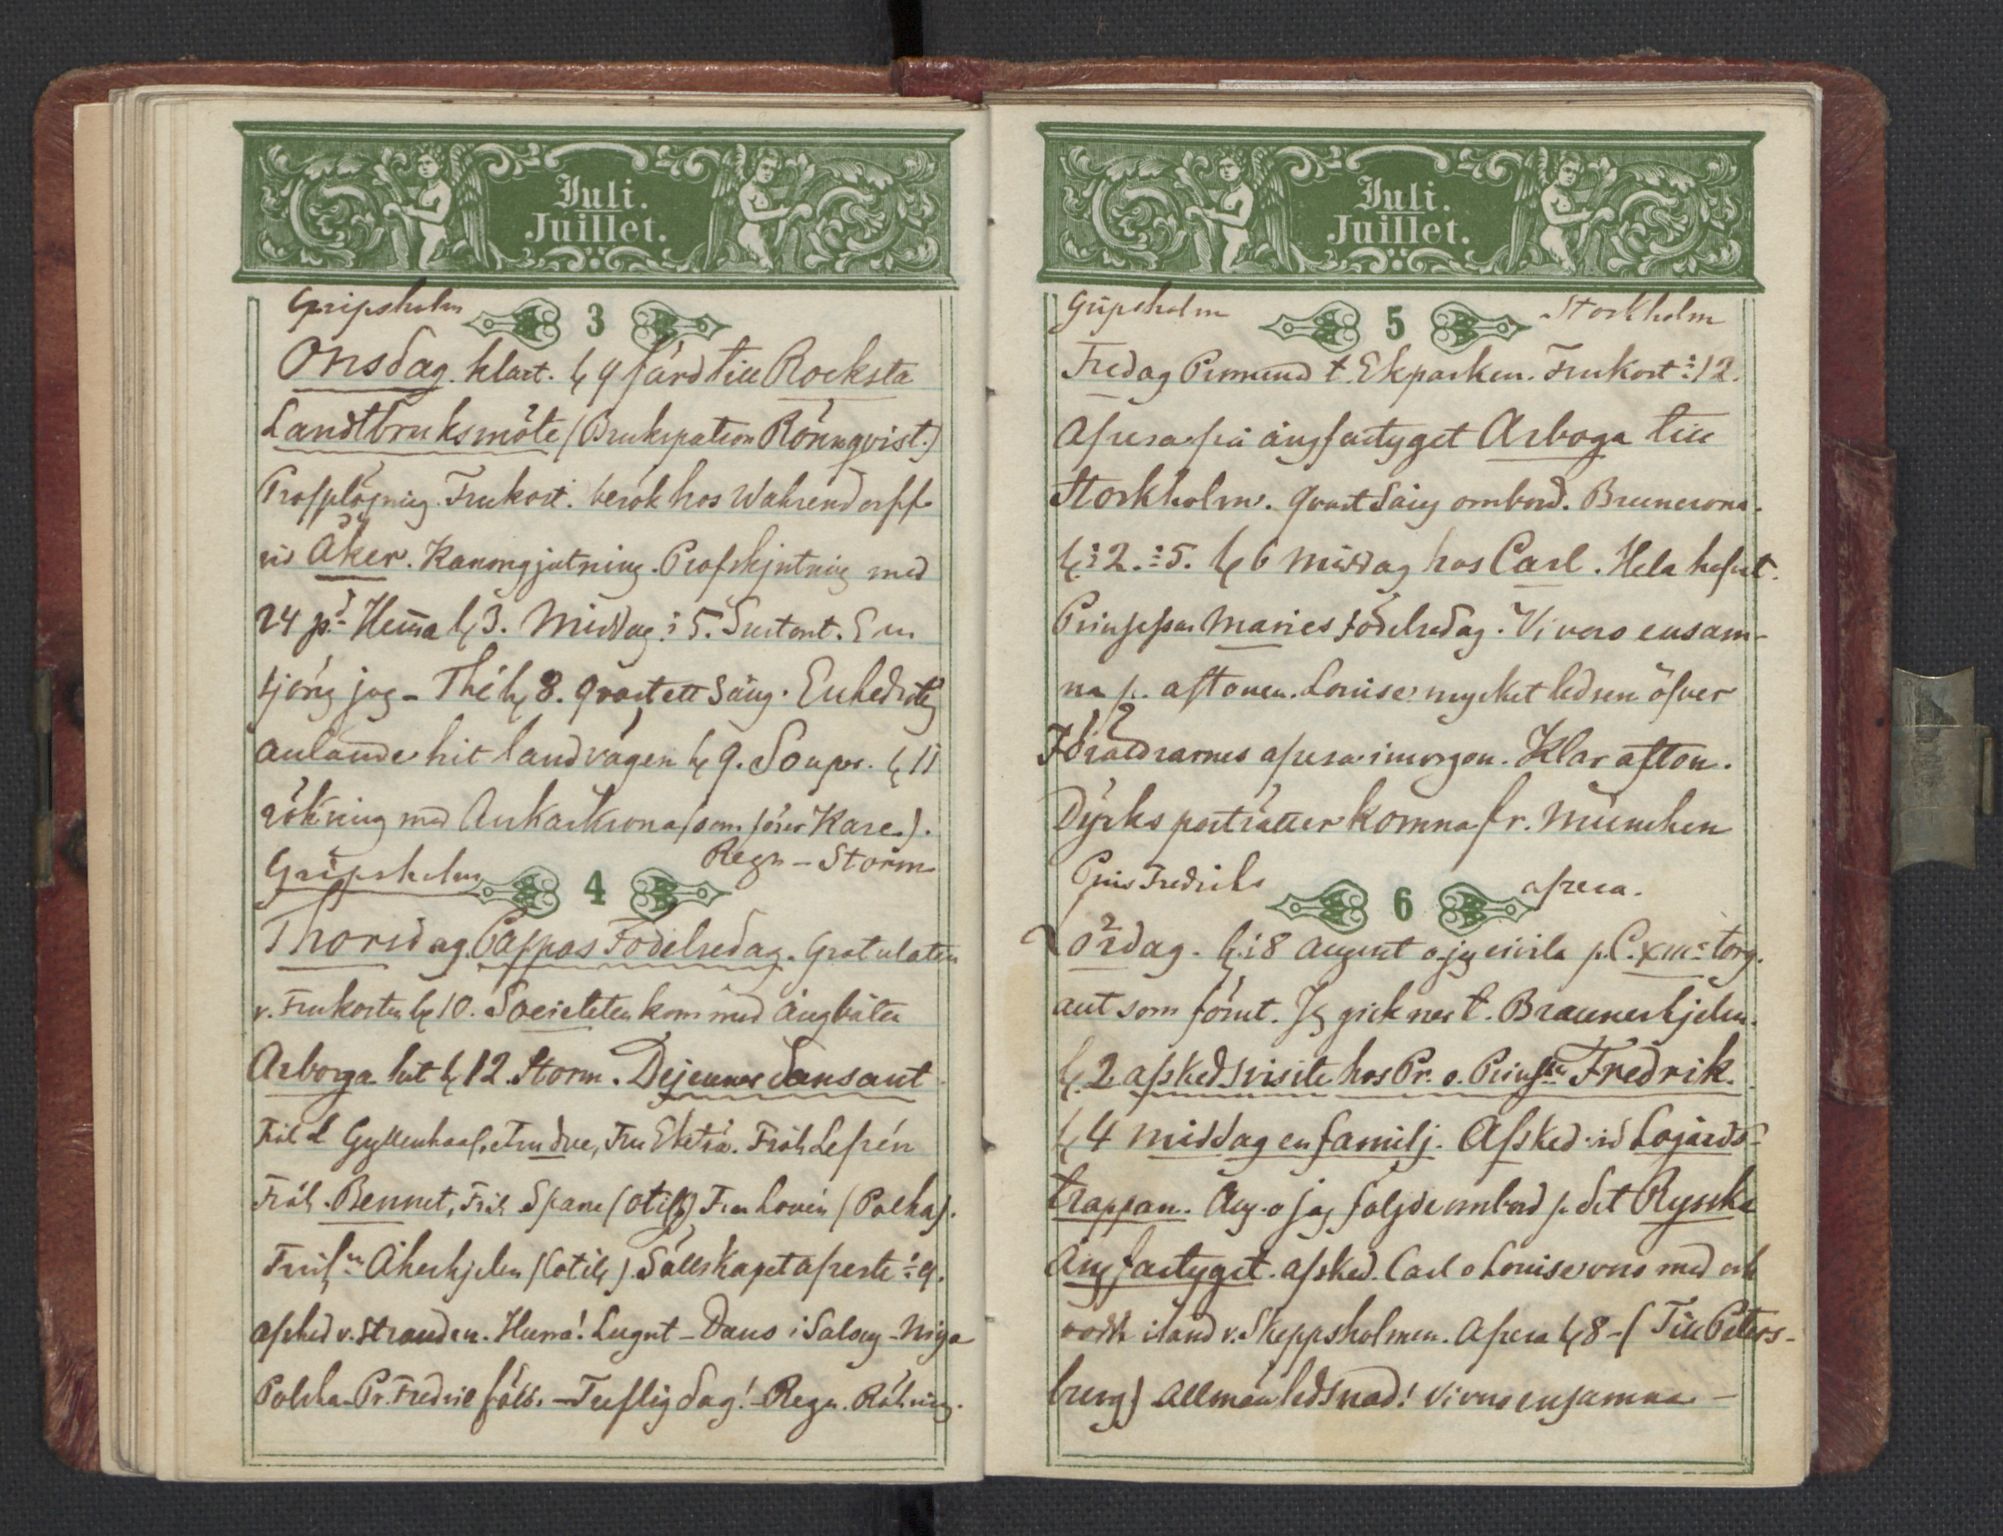 Juli.
Juillet.
Gripsholm
3
Onsdag. klart. kl 9 färd till Rocksta
Landtbruksmöte (Brukspatron Rönnqvist.)
Profplöjning. Frukost. besök hos Wahrendorff
vid Åker. Kanongjutning. Profskjutning med
24 pd Hemma kl 3. Middag ½ 5. En
sjöng jag – Thé kl 8. Qvartett Sång. Enhedrotteg
anlände hit landvägen kl 9. Souper. kl 11
rökning med Ankarkrona (som förer Kare).
Gripsholm
Regn – Storm
4
Thorsdag Pappas Födelsedag. Gratulation
v. Frukosten kl 10. Societeten kom med ångbåten
Arboga hit kl 12. Storm. Dejeuner dansant
Fröl Gyllenhaal, Fru Due, Fru Ekströ. Fröl. Lefrén
Fröl. Bennet, Fröl Sparre (Cotill) Fru Lovén (Polka).
Åkerhjelm (Cotill). Sällskapet afreste ½ 9.
afsked v. Stranden. Hurra! Lugnt – Dans i Salong – Niga
Polska – Pr. Fredric föll. – Tuflig dag! – Regn. Rökning.
Juli.
Juillet.
Gripsholm
Stockholm
5
Fredag Promenad t. Ekparken. Frukost ½ 12.
Afresa på ångfartyget Arboga till
Stockholm. Qvart Sång ombord. Brunerona.
kl ½ 2. ½ 5. kl 6 Middag hos Carl. Hela hofvet.
Prinsessan Maries födelsedag. Vi voro ensam-
na p. aftonen. Louise mycket ledsen öfver
Föräldrarnes afresa i morgon. Klar afton.
Dÿrks porträtter komna fr. München
Prins Fredriks
afresa.
6
Lördag. kl ½ 8 August o jag civila p. C. XIII:s torg.
aut som förut. Jg gick ner t. Braunerhjelm.
kl. 2 afskedsvisite hos Pr. o. Prinssan Fredrik.
kl 4 middag en familj. Afsked vid Logårds-
trappan. Aug. o jag följde ombord p. det Ryska
Ångfartyget. afsked. Carl o Louise voro med och
rodde i land v. Skeppsholmen. Afresa kl 8 – (Till Peters-
burg) Allmän ledsnad! Vi voro ensamna –